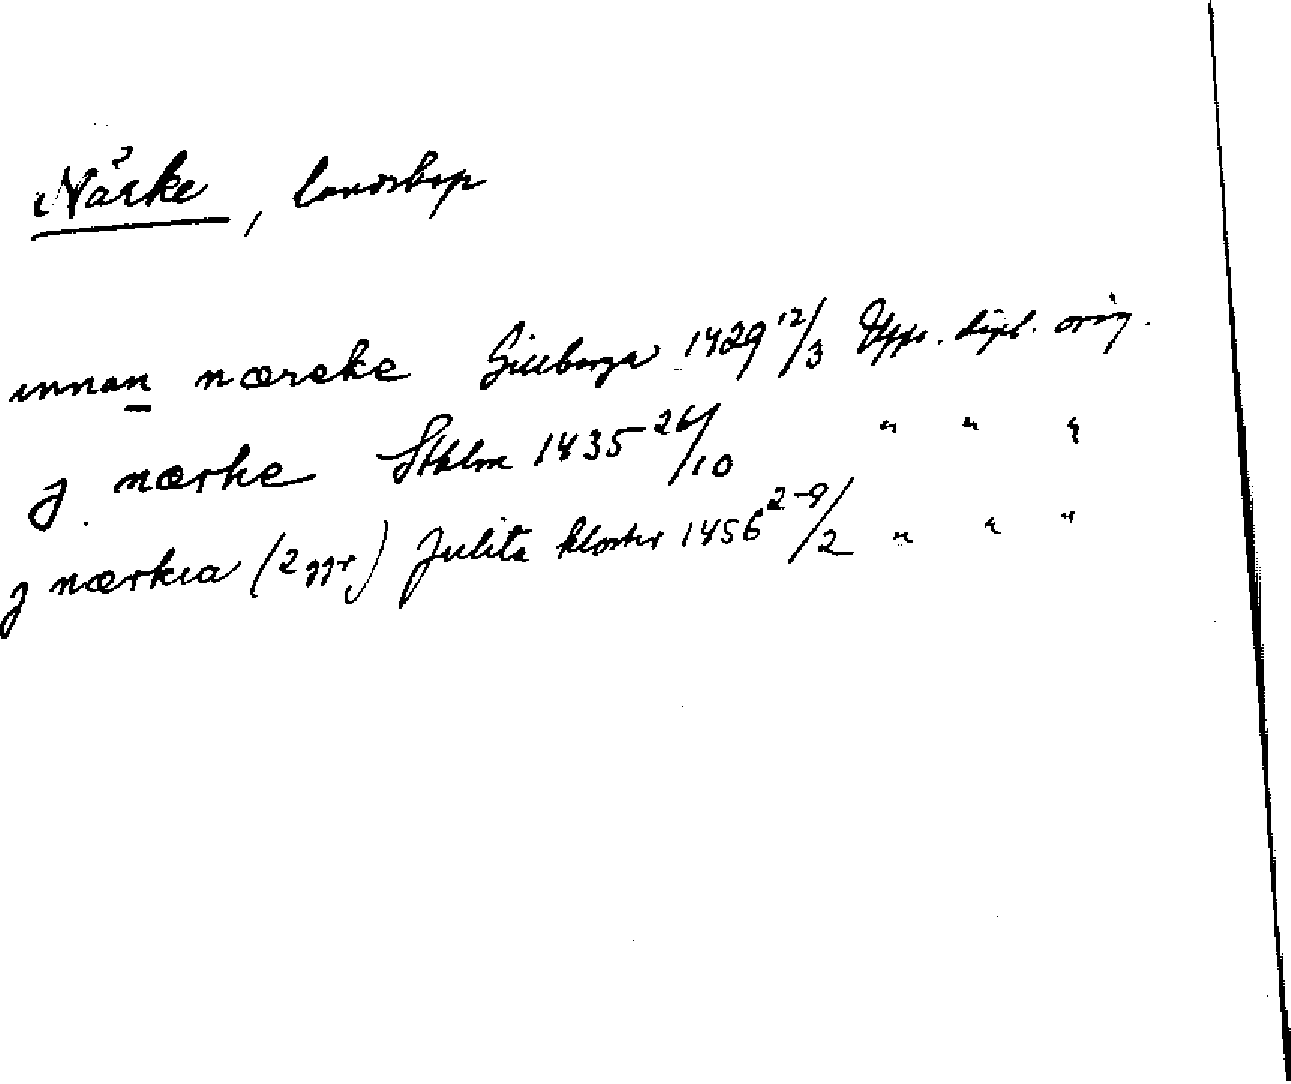 Närke, landskap
innan næreke Gilberga 1429 12/3 Upps. dipl. orig.
J nærke Sthlm 1435 26/10 " " "
J nærkia (2 ggr) Julita kloster 1456 2-9/2 " " "